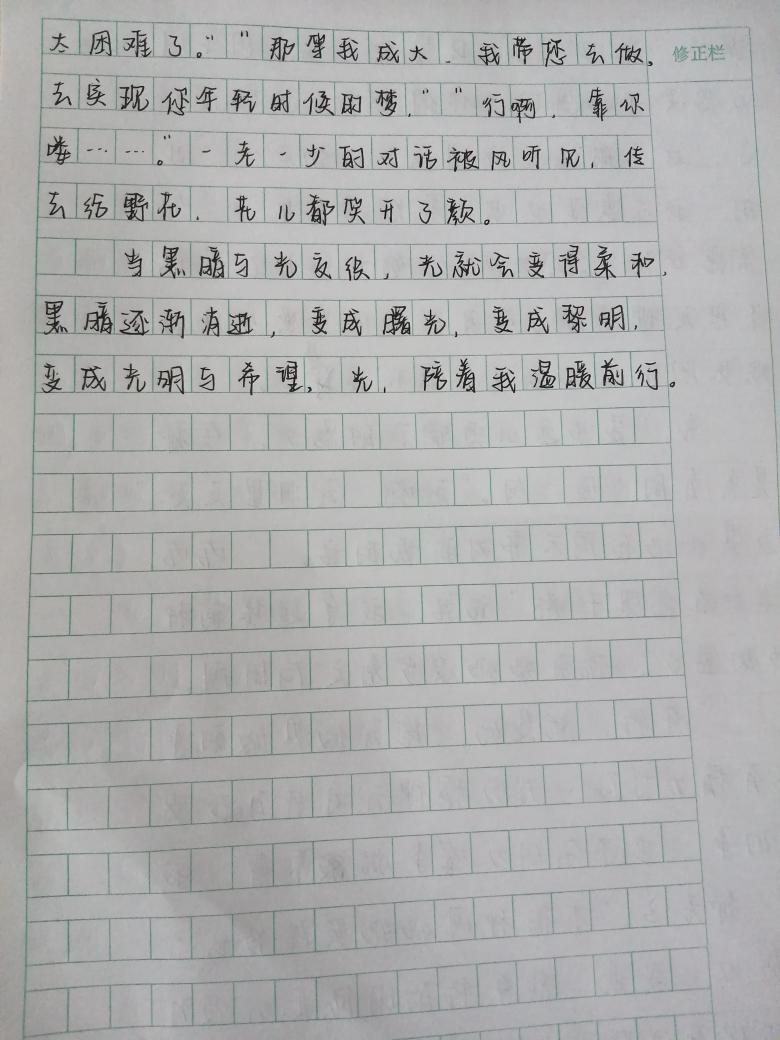 太困难了。”“那等我成大，我带您去做，
修正栏
去实现您年轻时候的梦，”“行啊，靠你
喽……。”一老一少的对话被风听见，传
去给野花，花儿都笑开了颜。
当黑暗与光交织，光就会变得柔和，
黑暗逐渐消逝，变成曙光，变成黎明，
变成光明与希望。光，陪着我温暖前行。